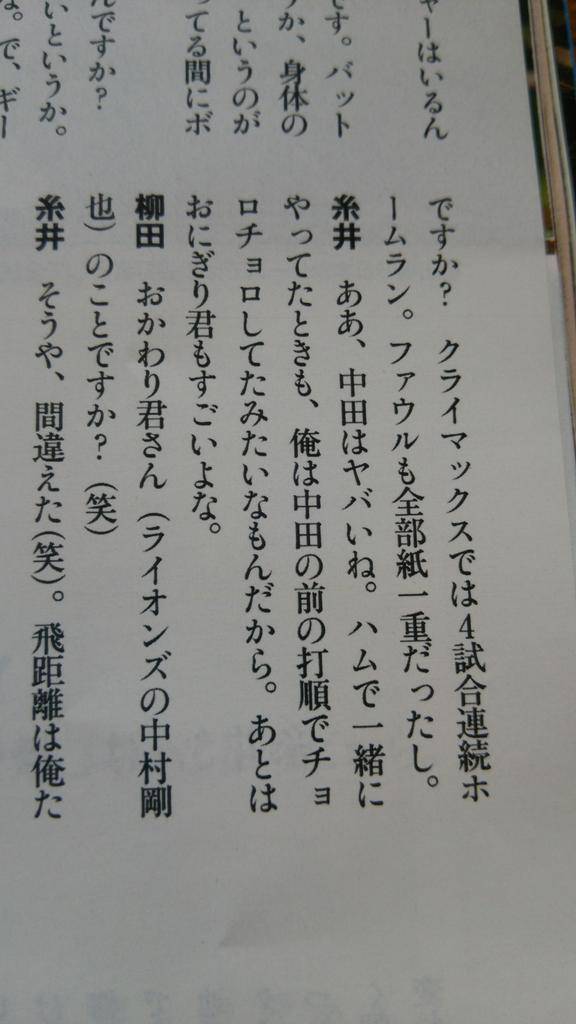 ャーはいるん
です。バット
か、身体の
というのが
ってる間にボ
んですか?
いというか。
な。で、ギー
ですか? クライマックスでは4試合連続ホ
ームラン。ファウルも全部紙一重だったし。
糸井 ああ、中田はヤバいね。ハムで一緒に
やってたときも、俺は中田の前の打順でチョ
ロチョロしてたみたいなもんだから。あとは
おにぎり君もすごいよな。
柳田 おかわり君さん(ライオンズの中村剛
也)のことですか?(笑)
糸井 そうや、間違えた(笑)。飛距離は俺た